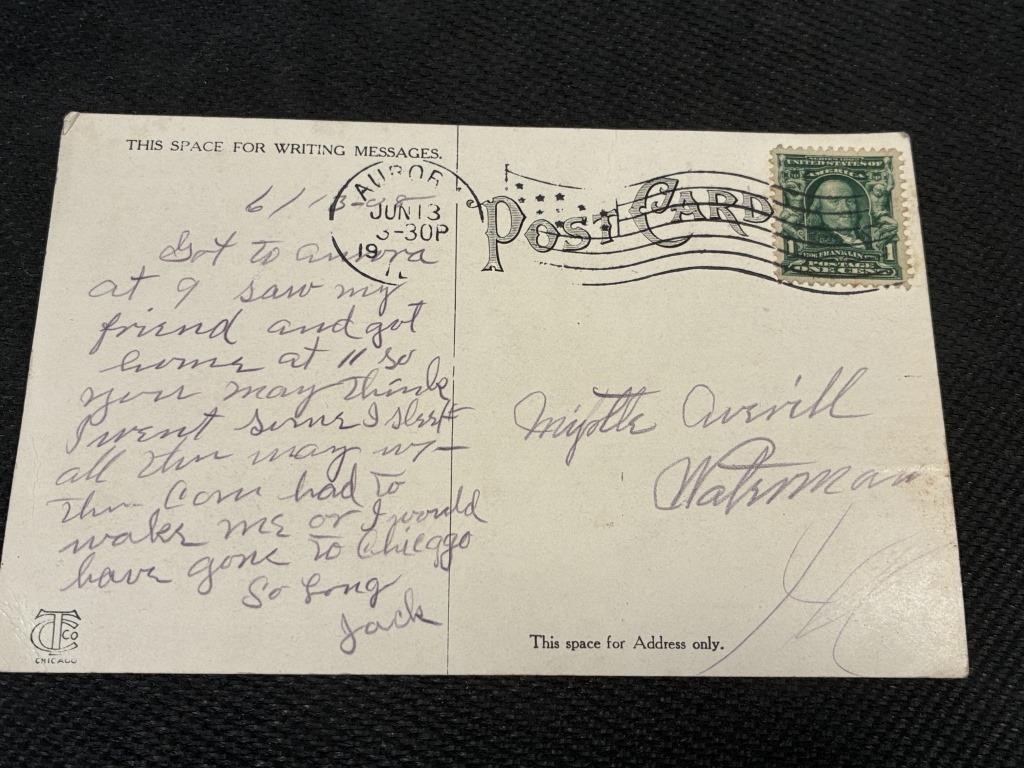 THIS SPACE FOR WRITING MESSAGES.
AUROR
JUN 13
3-30P
19
IL
POST CARD
SERIES 1902
UNITED STATES OF
AMERICA
1 FRANKLIN 1
POSTAGE
ONE CENT
6/13-08
Got to aurora
at 9 saw my
friend and got
home at 11 so
you may think
I went some I slept
all the way up
the Conn had to
wake me or I would
have gone to Chicago
So Long
Jack
Myrtle Averill
Waterman
Ill
This space for Address only.
CTCo
CHICAGO